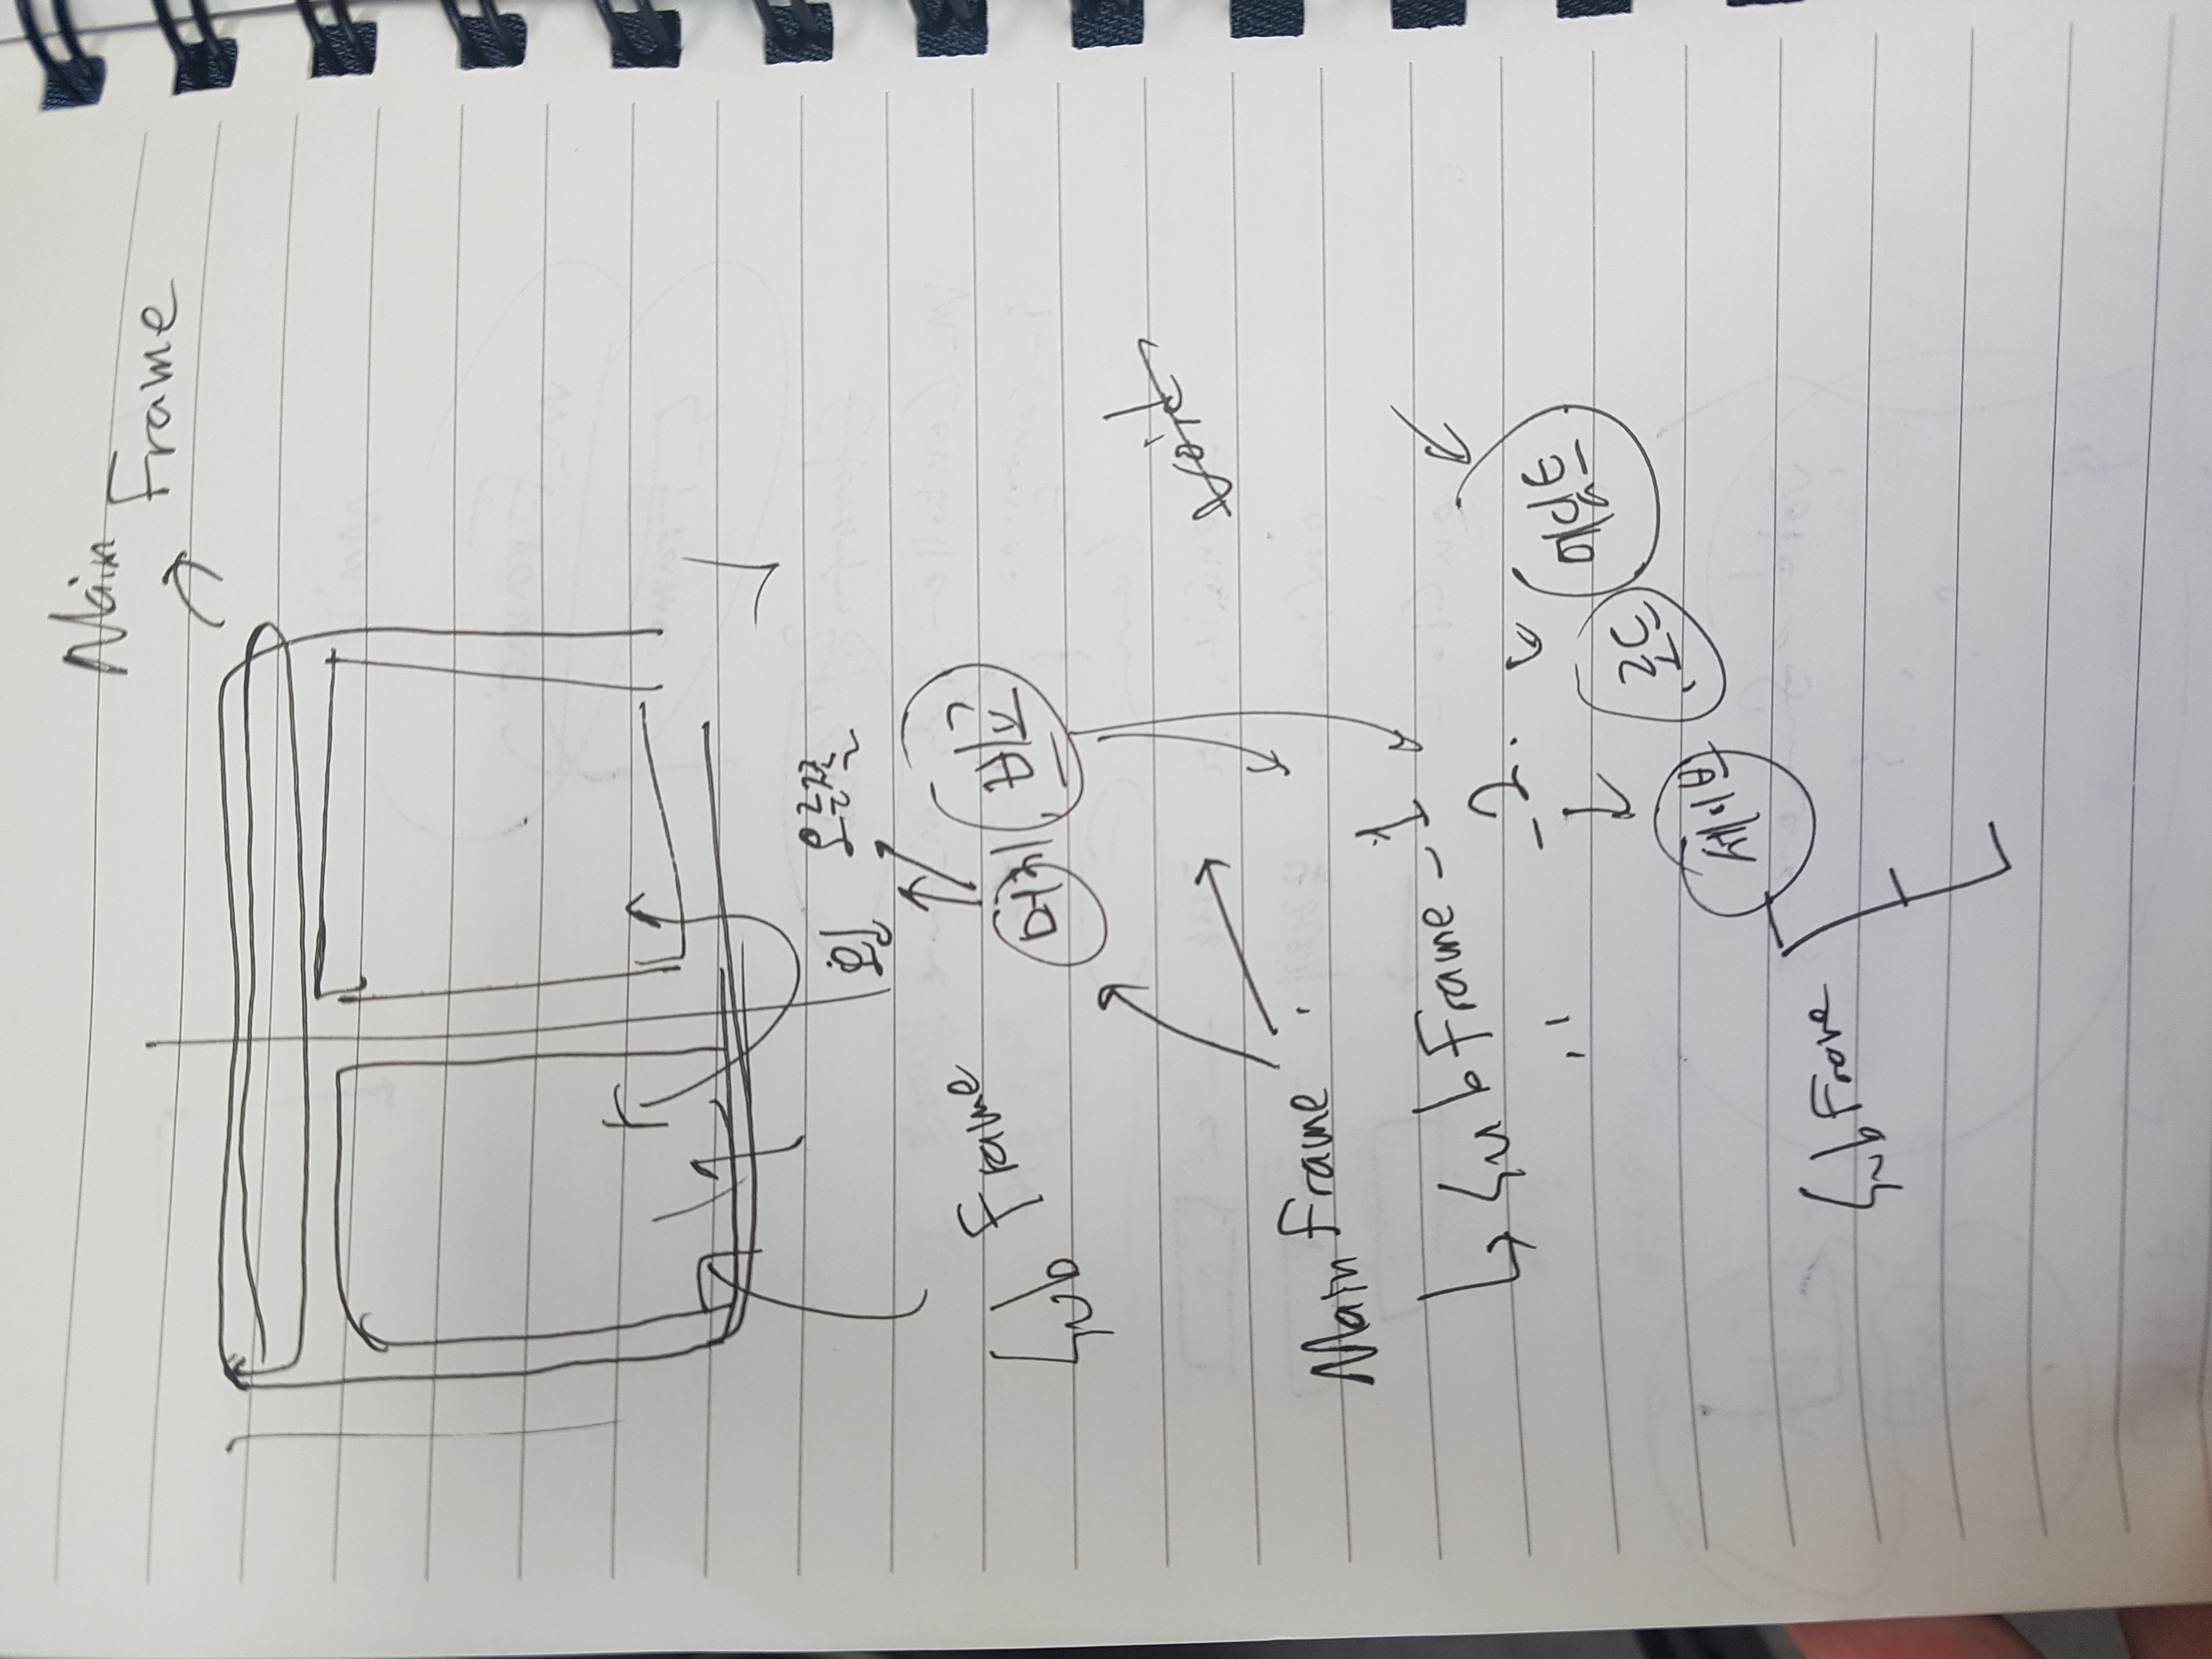 Main
Frame
왼
오른쪽
Sub Frame
머지 비교
void
Main Frame
Sub Frame - 1
- 2.
에딭트
로드
세이브
Sub Frame